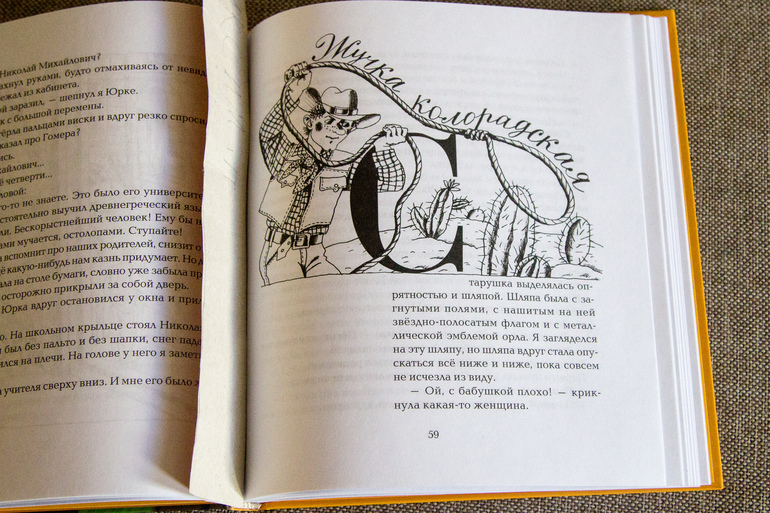 Николай Михайлович?
руками, будто отмахиваясь от
из кабинета.
заразил, — шепнул я Юрке.
с большой перемены.
пальцами виски и вдруг резко
про Гомера?
четверти...
не знаете. Это было его
выучил древнегреческий
Бескорыстнейший человек! Ему бы
мучается, остолопами. Ступайте!
вспомнит про наших родителей,
какую-нибудь нам казнь придумает. Но
на столе бумаги, словно уже забыла
осторожно прикрыли за собой дверь.
Юрка вдруг остановился у окна и
На школьном крыльце стоял
был без пальто и без шапки, снег
на плечи. На голове у него я
учителя сверху вниз. И мне его было
Жучка колорадская
Старушка выделялась оп-
рятностью и шляпой. Шляпа была с за-
гнутыми полями, с нашитым на ней
звёздно-полосатым флагом и с метал-
лической эмблемой орла. Я загляделся
на эту шляпу, но шляпа вдруг стала опу-
скаться всё ниже и ниже, пока совсем
не исчезла из виду.
— Ой, с бабушкой плохо! — крик-
нула какая-то женщина.
59